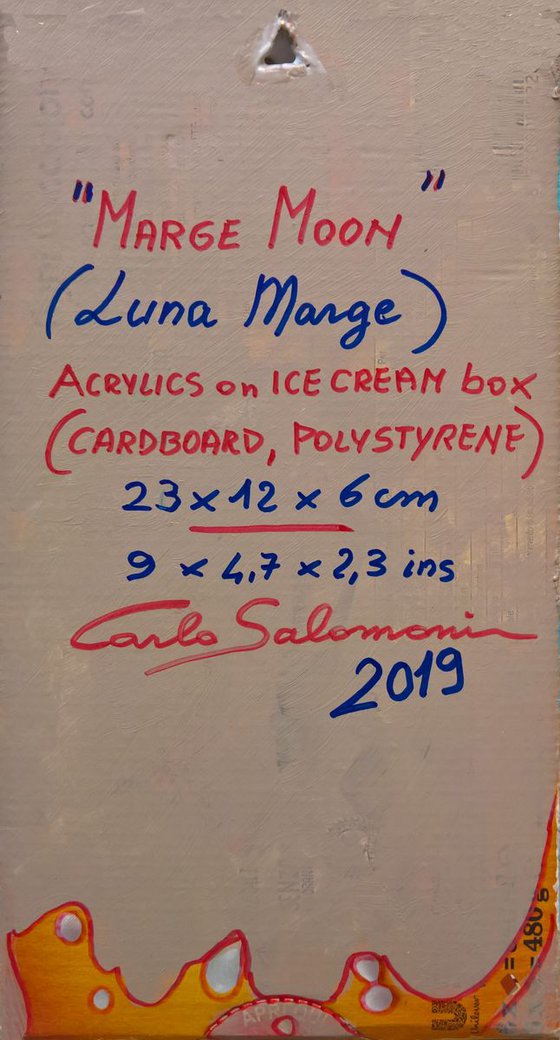 "MARGE MOON"
(Luna Marge)
ACRYLICS on ICE CREAM box
(CARDBOARD, POLYSTYRENE)
23 x 12 x 6 cm
9 x 4,7 x 2,3 ins
Carlo Salomoni
2019
480 g
Unilever